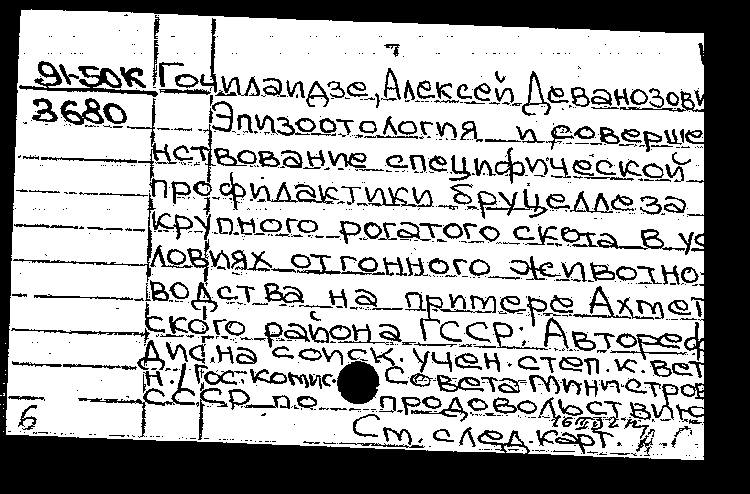 91-50к Гочилаидзе, Алексей Деванозови
3680 Эпизоотология и соверше
нствование специфической
профилактики бруцеллеза
крупного рогатого скота в ус
ловиях отгонного животно-
водства на примере Ахмет
ского района ГССР: Автореф
дис. на соиск. учен. степ. к. вет
н. / Гос. комис. Совета Министров
СССР по продовольствию
См. след. карт.
6